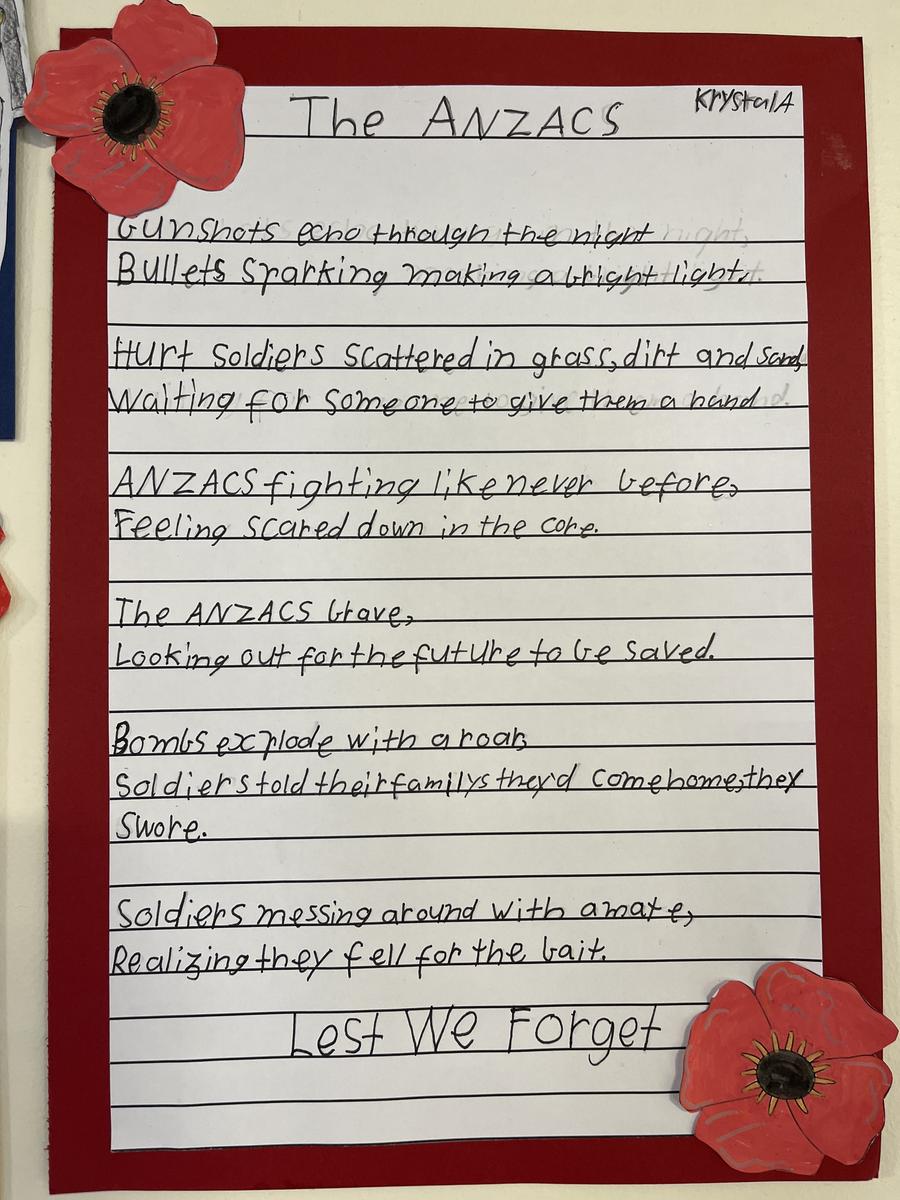 The ANZACS
Krystal A
Gunshots echo through the night
Bullets Sparking making a bright light.
Hurt Soldiers Scattered in grass, dirt and sand,
Waiting for someone to give them a hand
ANZACS fighting like never before,
Feeling scared down in the core.
The ANZACS brave,
Looking out for the future to be saved.
Bombs explode with a roar,
Soldiers told their familys they'd come home, they
Swore.
Soldiers messing around with a mate,
Realizing they fell for the bait.
Lest We Forget